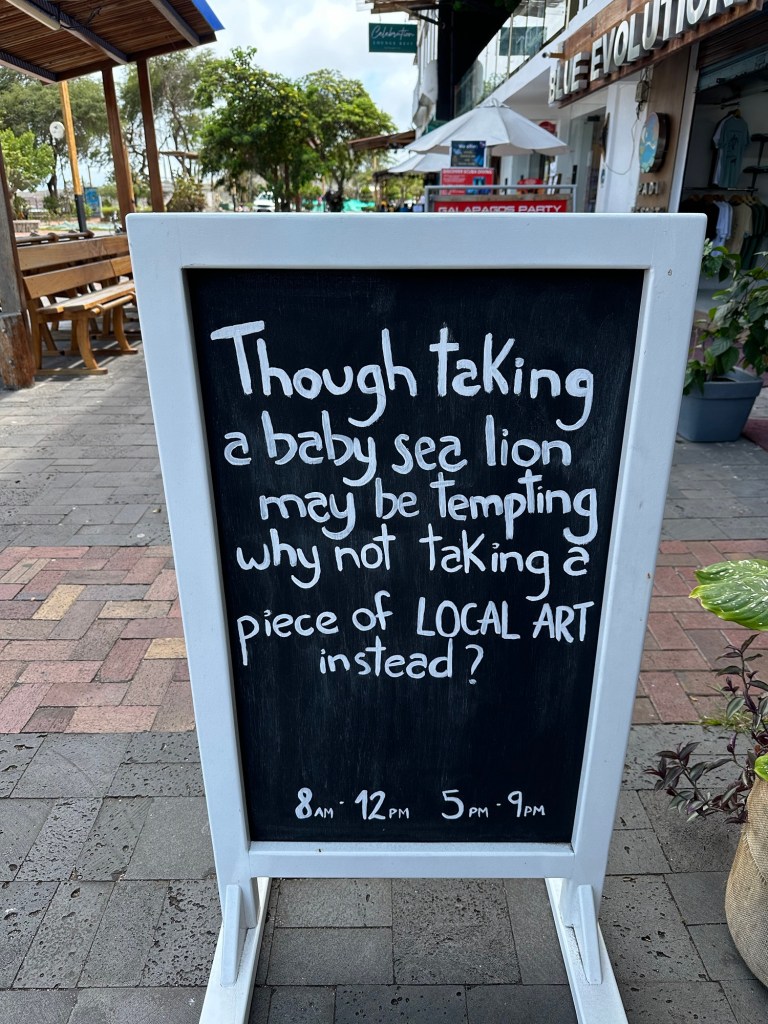 Celebration
BLUE EVOLUTION
GALAPAGOS PARTY
Though taking
a baby sea lion
may be tempting
why not taking a
piece of LOCAL ART
instead?
8AM - 12PM 5PM - 9PM